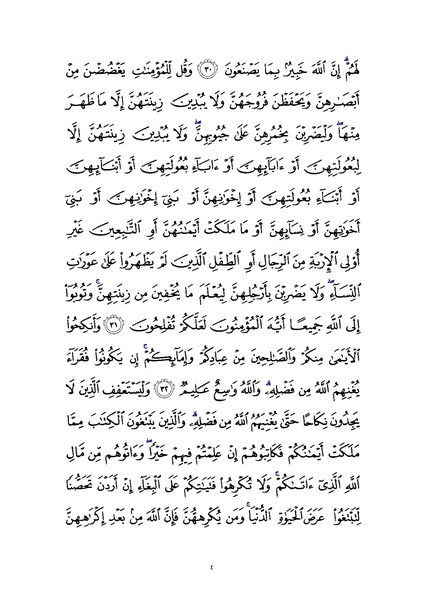 لَهُمْۗ إِنَّ ٱللَّهَ خَبِيرُۢ بِمَا يَصْنَعُونَ ﴿٣٠﴾ وَقُل لِّلْمُؤْمِنَٰتِ يَغْضُضْنَ مِنْ
أَبْصَٰرِهِنَّ وَيَحْفَظْنَ فُرُوجَهُنَّ وَلَا يُبْدِينَ زِينَتَهُنَّ إِلَّا مَا ظَهَرَ
مِنْهَاۖ وَلْيَضْرِبْنَ بِخُمُرِهِنَّ عَلَىٰ جُيُوبِهِنَّۖ وَلَا يُبْدِينَ زِينَتَهُنَّ إِلَّا
لِبُعُولَتِهِنَّ أَوْ ءَابَآئِهِنَّ أَوْ ءَابَآءِ بُعُولَتِهِنَّ أَوْ أَبْنَآئِهِنَّ
أَوْ أَبْنَآءِ بُعُولَتِهِنَّ أَوْ إِخْوَٰنِهِنَّ أَوْ بَنِىٓ إِخْوَٰنِهِنَّ أَوْ بَنِىٓ
أَخَوَٰتِهِنَّ أَوْ نِسَآئِهِنَّ أَوْ مَا مَلَكَتْ أَيْمَٰنُهُنَّ أَوِ ٱلتَّٰبِعِينَ غَيْرِ
أُو۟لِى ٱلْإِرْبَةِ مِنَ ٱلرِّجَالِ أَوِ ٱلطِّفْلِ ٱلَّذِينَ لَمْ يَظْهَرُوا۟ عَلَىٰ عَوْرَٰتِ
ٱلنِّسَآءِۖ وَلَا يَضْرِبْنَ بِأَرْجُلِهِنَّ لِيُعْلَمَ مَا يُخْفِينَ مِن زِينَتِهِنَّۚ وَتُوبُوٓا۟
إِلَى ٱللَّهِ جَمِيعًا أَيُّهَ ٱلْمُؤْمِنُونَ لَعَلَّكُمْ تُفْلِحُونَ ﴿٣١﴾ وَأَنكِحُوا۟
ٱلْأَيَٰمَىٰ مِنكُمْ وَٱلصَّٰلِحِينَ مِنْ عِبَادِكُمْ وَإِمَآئِكُمْۚ إِن يَكُونُوا۟ فُقَرَآءَ
يُغْنِهِمُ ٱللَّهُ مِن فَضْلِهِۦۗ وَٱللَّهُ وَٰسِعٌ عَلِيمٌ ﴿٣٢﴾ وَلْيَسْتَعْفِفِ ٱلَّذِينَ لَا
يَجِدُونَ نِكَاحًا حَتَّىٰ يُغْنِيَهُمُ ٱللَّهُ مِن فَضْلِهِۦۗ وَٱلَّذِينَ يَبْتَغُونَ ٱلْكِتَٰبَ مِمَّا
مَلَكَتْ أَيْمَٰنُكُمْ فَكَاتِبُوهُمْ إِنْ عَلِمْتُمْ فِيهِمْ خَيْرًاۖ وَءَاتُوهُم مِّن مَّالِ
ٱللَّهِ ٱلَّذِىٓ ءَاتَىٰكُمْۚ وَلَا تُكْرِهُوا۟ فَتَيَٰتِكُمْ عَلَى ٱلْبِغَآءِ إِنْ أَرَدْنَ تَحَصُّنًا
لِّتَبْتَغُوا۟ عَرَضَ ٱلْحَيَوٰةِ ٱلدُّنْيَاۚ وَمَن يُكْرِههُّنَّ فَإِنَّ ٱللَّهَ مِنۢ بَعْدِ إِكْرَٰهِهِنَّ
٤